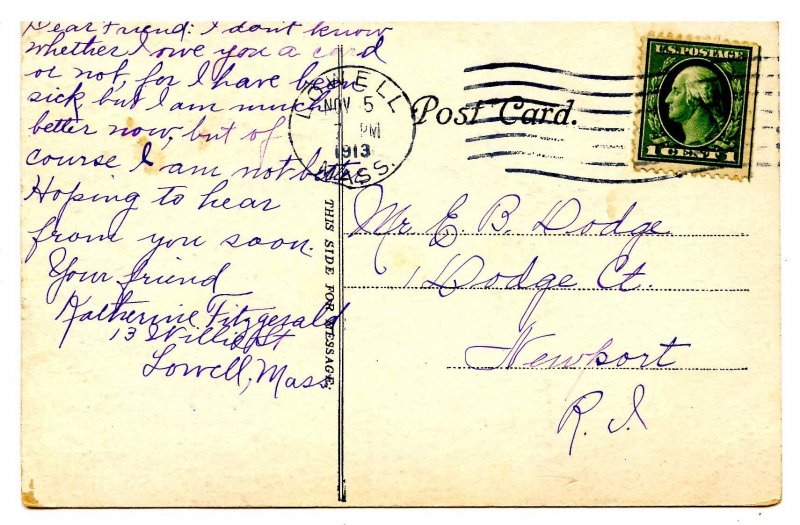 Dear Friend: I don't know
whether I owe you a card
or not, for I have been
sick but I am much
better now, but of
course I am not better
Hoping to hear
from you soon.
Your friend
Katherine Fitzgerald
13 Willie St
Lowell, Mass.
THIS SIDE FOR MESSAGE.
LOWELL
NOV 5
PM
1913
MASS.
Post Card.
U.S. POSTAGE
1 CENT 1
Mr. E. B. Dodge
1 Dodge Ct.
Newport
R. I.